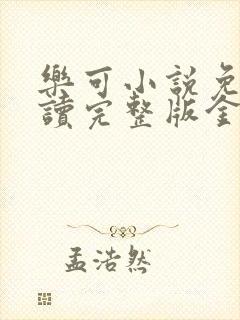 樂可小說免
讀完整版全
孟浩然